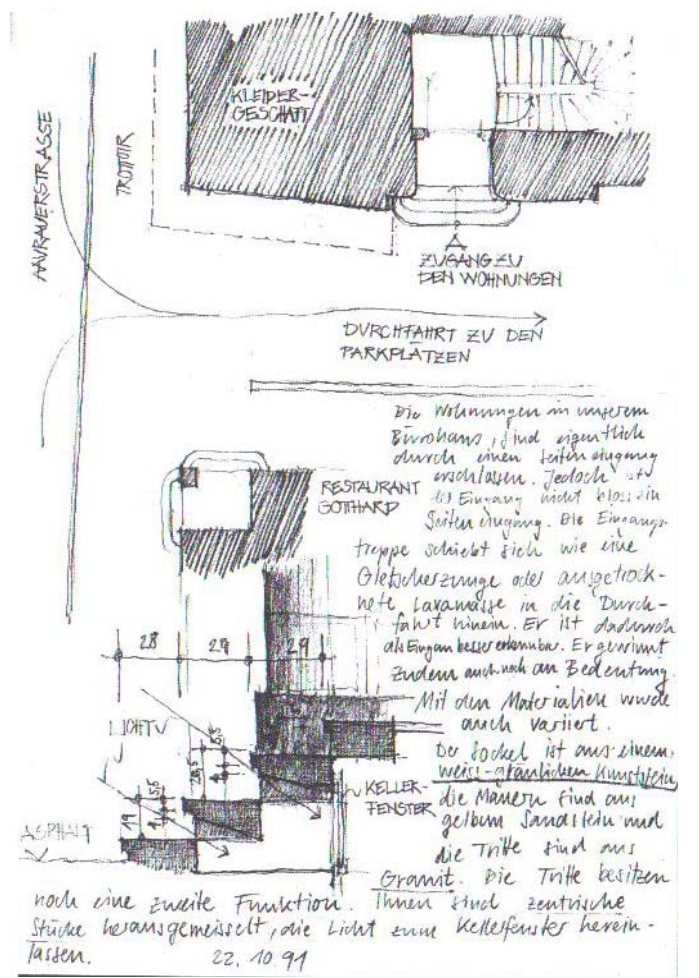 KLEIDER-
GESCHÄFT
AARAUERSTRASSE
TROTTOIR
ZUGANG ZU
DEN WOHNUNGEN
DURCHFAHRT ZU DEN
PARKPLÄTZEN
RESTAURANT
GOTTHARD
Die Wohnungen in unserem
Bürohaus, sind eigentlich
durch einen Seiteneingang
erschlossen. Jedoch ist
der Eingang nicht bloss ein
Seiteneingang. Die Eingangs-
treppe schiebt sich wie eine
Gletscherzunge oder ausgetrock-
nete Lavamasse in die Durch-
fahrt hinein. Er ist dadurch
als Eingan besser erkennbar. Er gewinnt
zudem auch noch an Bedeutung.
Mit den Materialien wurde
auch variiert.
Der Sockel ist aus einem
weiss-gräulichen Kunststein,
die Mauern sind aus
gelbem Sandstein und
die Tritte sind aus
Granit. Die Tritte besitzen
noch eine zweite Funktion. Ihnen sind zentrische
Stücke herausgemeisselt, die Licht zum Kellerfenster herein-
lassen. 22.10.91
28 29 29
LICHT
5,5
5,5
4
19
KELLER-
FENSTER
ASPHALT